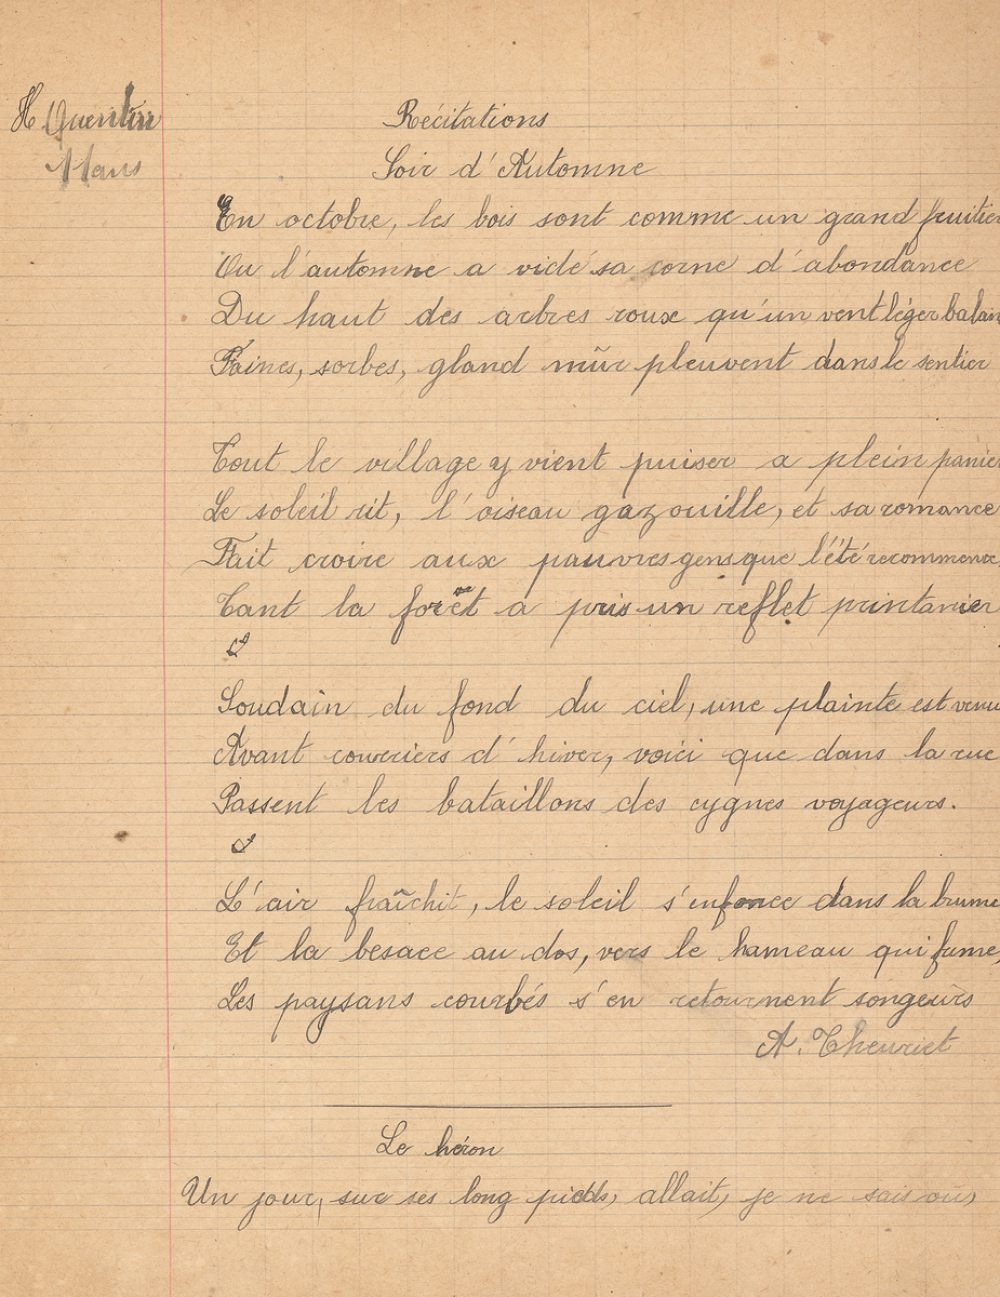 H Quentin
11 ans
Récitations
Soir d'Automne
En octobre, les bois sont comme un grand fruitier
Ou l'automne a vidé sa corne d'abondance
Du haut des arbres roux qu'un vent léger balan
Faines, sorbes, gland mûr pleuvent dans le sentier
Tout le village y vient puiser a plein panier
Le soleil rit, l'oiseau gazouille, et sa romance
Fait croire aux pauvres gens que l'été recommence,
Tant la forêt a pris un reflet printanier
Soudain du fond du ciel, une plainte est venu
Avant courriers d'hiver, voici que dans la nue
Passent les bataillons des cygnes voyageurs.
L'air fraîchit, le soleil s'enfonce dans la brume
Et la besace au dos, vers le hameau qui fume,
Les paysans courbés s'en retournent songeurs
A. Theuriet
Le héron
Un jour, sur ses long pieds, allait, je ne sais où,